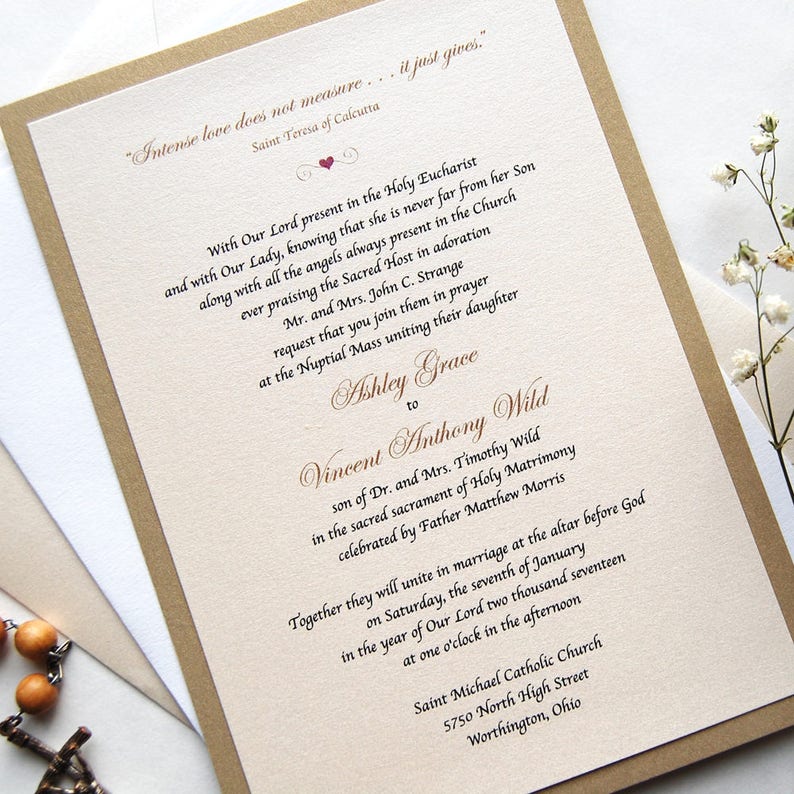 "Intense love does not measure . . . it just gives."
Saint Teresa of Calcutta
With Our Lord present in the Holy Eucharist
and with Our Lady, knowing that she is never far from her Son
along with all the angels always present in the Church
ever praising the Sacred Host in adoration
Mr. and Mrs. John C. Strange
request that you join them in prayer
at the Nuptial Mass uniting their daughter
Ashley Grace
to
Vincent Anthony Wild
son of Dr. and Mrs. Timothy Wild
in the sacred sacrament of Holy Matrimony
celebrated by Father Matthew Morris
Together they will unite in marriage at the altar before God
on Saturday, the seventh of January
in the year of Our Lord two thousand seventeen
at one o'clock in the afternoon
Saint Michael Catholic Church
5750 North High Street
Worthington, Ohio